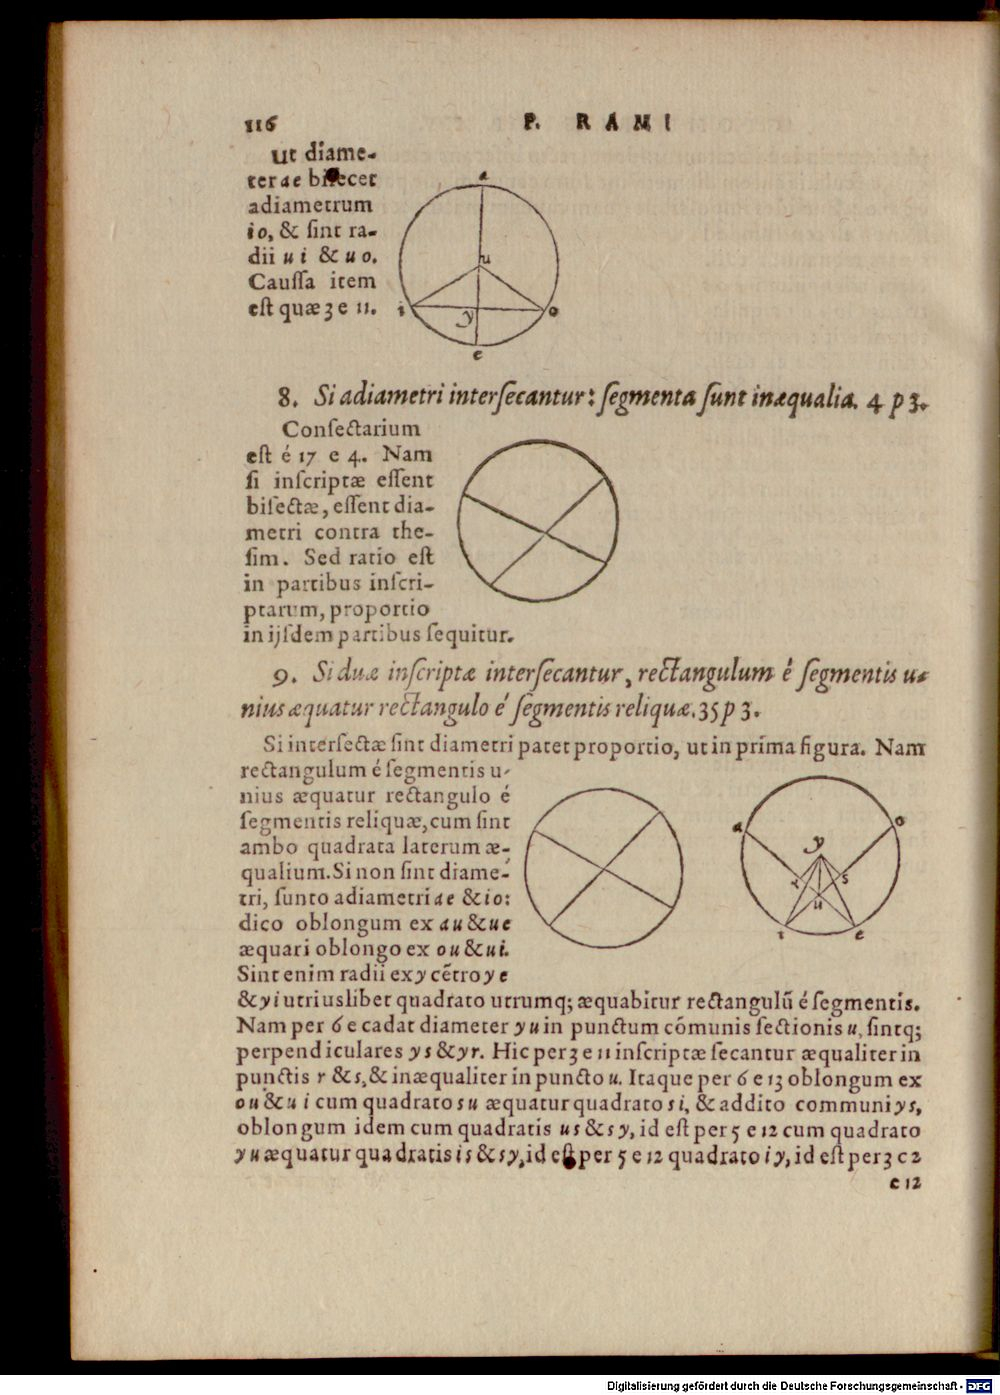 116 P. RAMI
Ut diame-
ter ae bisecet
adiametrum
io, & sint ra-
dii ui & uo.
Caussa item
est quæ 3 e 11.
a
u
i
y
o
e
8. Si adiametri intersecantur: segmenta sunt inæqualia. 4 p 3.
Consectarium
est é 17 e 4. Nam
si inscriptæ essent
bisectæ, essent dia-
metri contra the-
sim. Sed ratio est
in partibus inscri-
ptarum, proportio
in ijsdem partibus sequitur.
9. Si duæ inscriptæ intersecantur, rectangulum é segmentis u-
nius æquatur rectangulo é segmentis reliquæ. 35 p 3.
Si intersectæ sint diametri patet proportio, ut in príma figura. Nam
rectangulum é segmentis u-
nius æquatur rectangulo é
segmentis reliquæ, cum sint
ambo quadrata laterum æ-
qualium. Si non sint diame-
tri, sunto adiametri ae & io:
dico oblongum ex au & ue
æquari oblongo ex ou & ui.
Sint enim radii ex y cẽtro ye
a
o
y
r
s
u
i
e
& yi utriuslibet quadrato utrumq; æquabitur rectangulũ é segmentis.
Nam per 6 e cadat diameter yu in punctum cómunis sectionis u, sintq;
perpendiculares ys & yr. Hic per 3 e 11 inscriptæ secantur æqualiter in
punctis r & s, & inæqualiter in puncto u. Itaque per 6 e 13 oblongum ex
ou & ui cum quadrato su æquatur quadrato si, & addito communi ys,
oblongum idem cum quadratis us & sy, id est per 5 e 12 cum quadrato
yu æquatur quadratis is & sy, id est per 5 e 12 quadrato iy, id est per 3 c 2
e 12
Digitalisierung gefördert durch die Deutsche Forschungsgemeinschaft - DFG